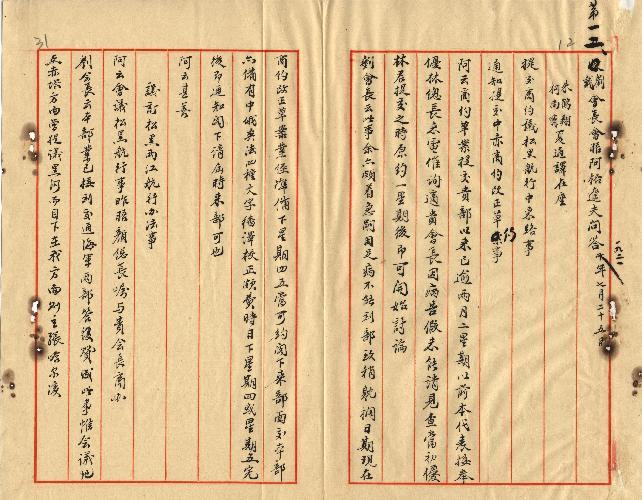 12
第一五
劉會長會晤阿格遜夫問答 十年七月二十五日
朱鶴翔
何南
夏通譯在座
提交商約議松黑航行中東路事
通知提交中俄商約改正草約事
阿云商約草案提交貴部以來已逾兩月二星期以前本代表接奉
優林總長來電催詢適貴會長因病告假未能請見查當初優
林君提交之時原約一星期後即可開始討論
劉會長云此事余亦頗着急嗣因足病不能到部致稍躭擱日期現在
31
商約改正草案業經繕備下星期四五當可約閣下來部面交本部
亦備有中俄英法四種文字繕譯校正頗費時日下星期四或星期五完
後即通知閣下請屆時來部可也
阿云甚善
議訂松黑兩江航行办法事
阿云會議松黑航行事昨晤顏總長囑与貴會長商办
劉會長云本部業已接到交通海軍兩部答復贊成此事惟會議地
點赤塔方面曾提議黑河而目下在我方面則主張哈尔濱